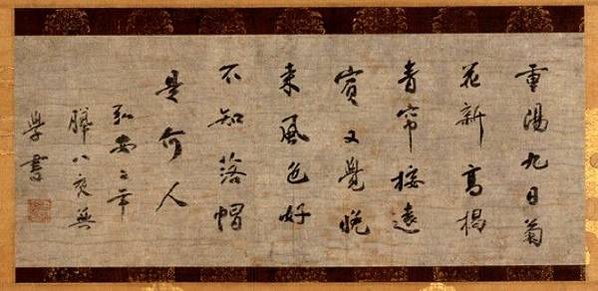 重陽九日菊
花新高掲
青帘接遠
賓又覺晩
来風色好
不知落帽
是何人
弘安二年
臘八夜無
學書